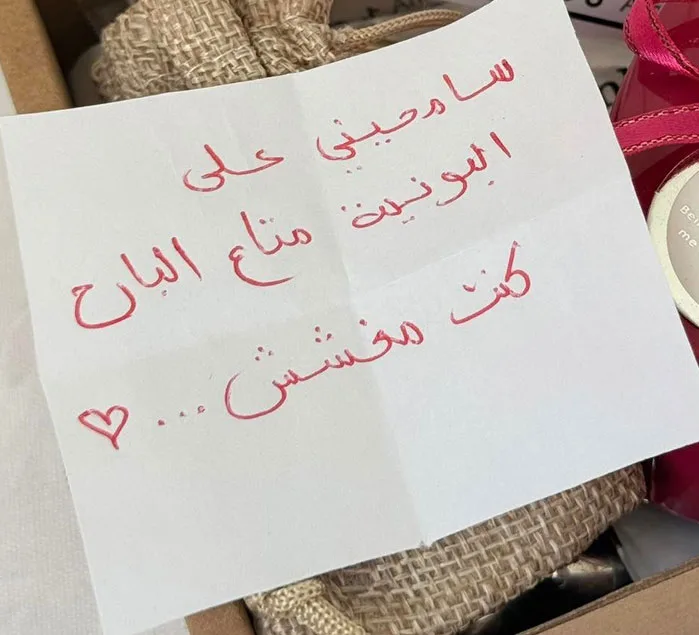 سامحيني على
البونية متاع البارح
كنت مغشش ... ♡
Be
me